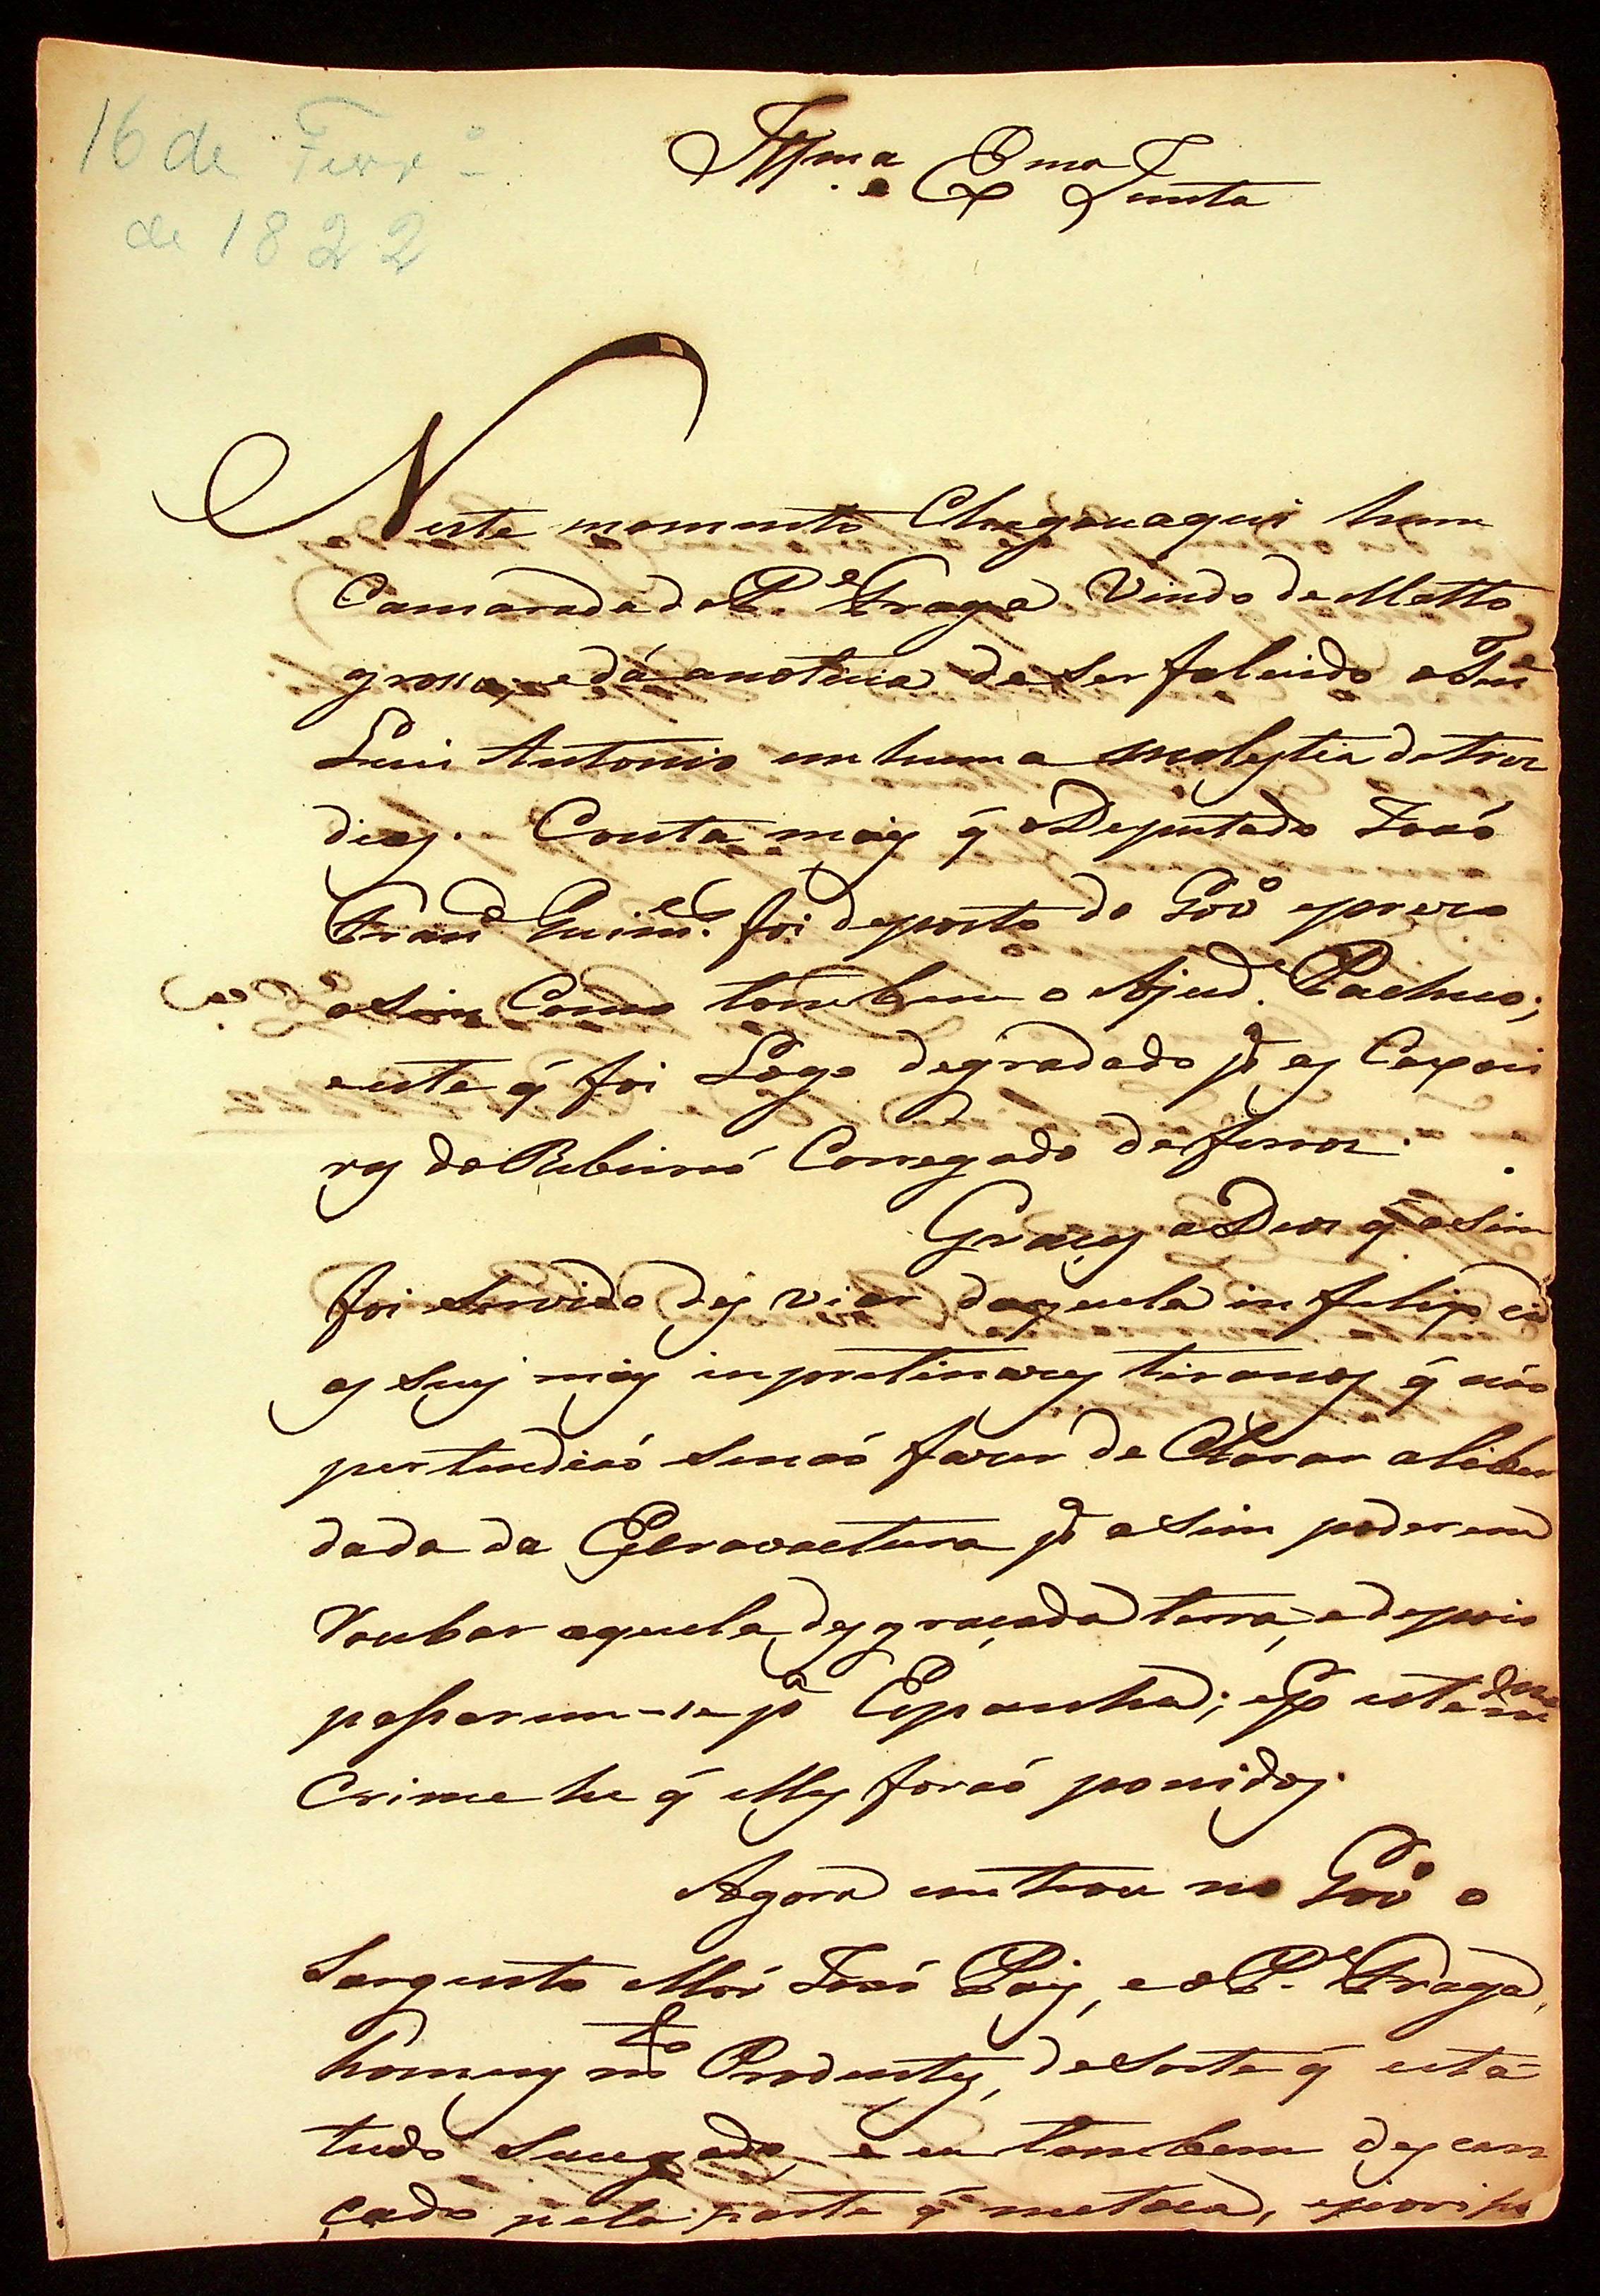 16 de Fevr.º
de 1822
Illma. e Exma Junta
Neste momento Chegou aqui hum
Camarada do P.e Fraga Vindo de Matto
grosso, e dá a noticia de ser falecido o Ten.e
Luis Antonio em huma molestia de trez
dias. Conta mais q̃ o Deputado Joaõ
Fran.co Guim.es foi deposto do Gov.º e prezo
asim Como tambem o Ajud.e Pacheco;
e este q̃ foi Logo degradado p.a as Caxoei
ras do Ribeiraõ Carregado de ferros.
Graças a Deos q̃ asim
foi Servido desviar daquela infelis cid.e
os seus mais inpretinazes tiranos q̃ naõ
pertendiaõ Senaõ fazer de Clarar a liber
dade da Escravactura p.a asim poderem
Roubar aquela desgraçada terra, e depois
passarem-se p.a Espanha; e p.r este enorme
Crime he q̃ elles foraõ ponidos.
Agora entrou no Gov.º o
Sargento Mór Joaõ Paes, e o P.e Fraga,
homens m.to Prodentes, de Sorte q̃ está
tudo Sucegado, e eu tambem descan
çado pela parte q̃ me toca,